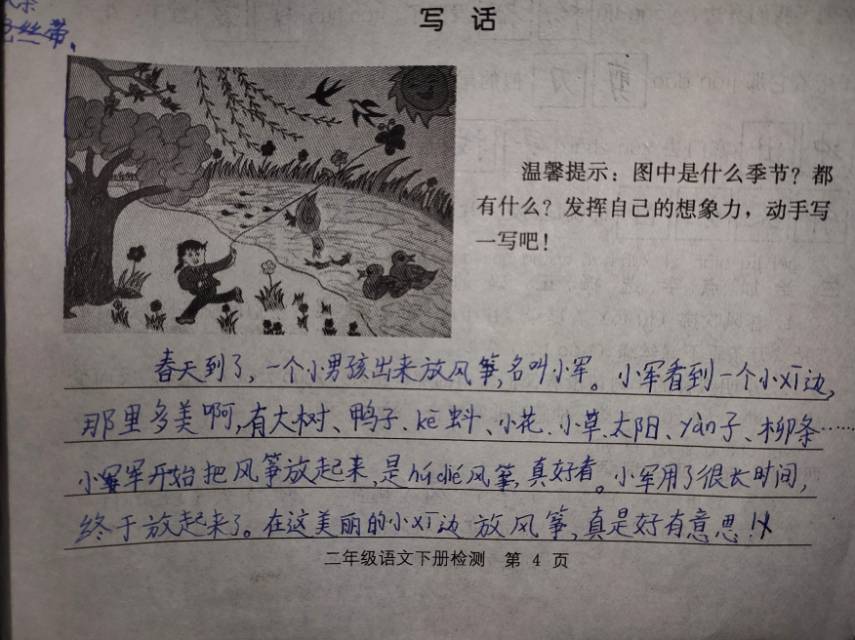 丝带、
写 话
温馨提示：图中是什么季节？都
有什么？发挥自己的想象力，动手写
一写吧！
春天到了，一个小男孩出来放风筝，名叫小军。小军看到一个小xī边，
那里多美啊，有大树、鸭子、kē蚪、小花、小草、太阳、yàn子、柳条……
小军开始把风筝放起来，是hú dié风筝，真好看。小军用了很长时间，
终于放起来了。在这美丽的小xī边放风筝，真是好有意思！
二年级语文下册检测 第 4 页